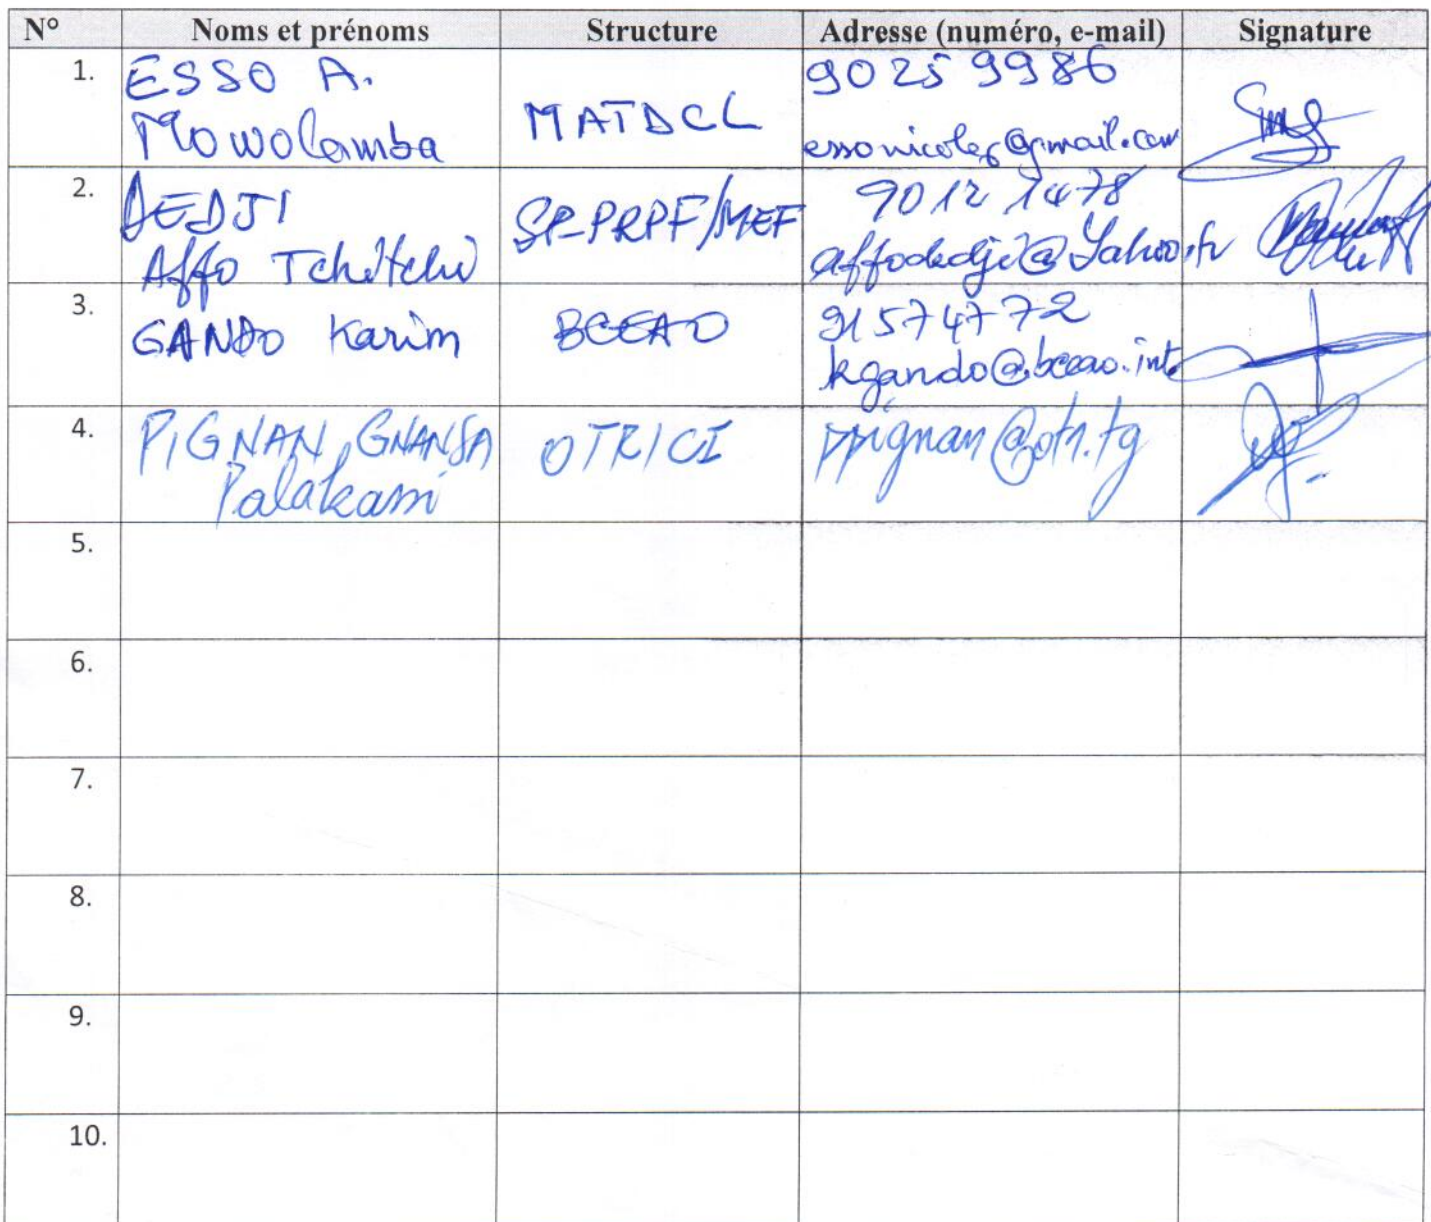 N° Noms et prénoms Structure Adresse (numéro, e-mail) Signature
1. ESSO A. Mowolamba MATDCL 90 25 99 86
essonicoles@gmail.com
2. DEDJI SP-PRPF/MEF 90 12 14 78
Affo Tchitchi affodedji@Yahoo.fr
3. GANDO Karim BCEAO 91 57 47 72
kgando@bceao.int
4. PIGNAN, GNANSA OTR/CI ppignan@otr.tg
Palakassi
5.
6.
7.
8.
9.
10.